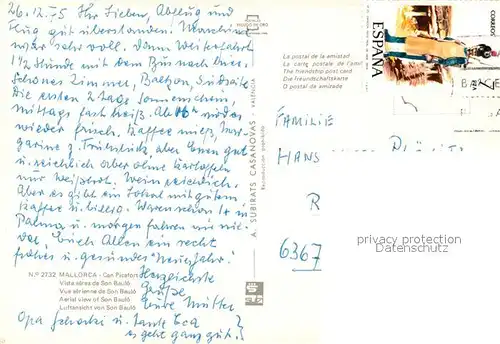 26.12.75 Ihr Lieben, Abflug und
Flug gut überstanden. Maschine
war sehr voll. Dann Weiterfahrt
1 1/2 Stunde mit dem Bus nach hier.
Schönes Zimmer, Balkon, Südseite
Die ersten 2 Tage Sonnenschein,
mittags fast heiß. Ab 16h
wieder frisch. Kaffee mies, Mar-
garine z. Frühstück, aber Essen gut
u. reichlich aber ohne Kartoffeln
nur Weißbrot. Wein reichlich.
Aber es gibt ein Lokal mit gutem
Kaffee u. Waren schon 1x in
Palma u. morgen fahren wir wie-
der. Euch Allen ein recht
frohes u. gesundes "Neuesjahr"!
Herzlichste
Grüße
Eure Mutter
Opa u. Tante
es geht ganz gut!
N.º 2732 MALLORCA - Can Picafort
Vista aérea de Son Bauló
Vue aérienne de Son Bauló
Aerial view of Son Bauló
Luftansicht von Son Bauló
A. SUBIRATS CASANOVAS - VALENCIA
Reproducción prohibida
La postal de la amistad
La carte postale de l'ami
The friendship post card
Die Freundschaftskarte
O postal da amizade
ESPAÑA
CORREOS
FAMILIE
HANS
R
6367
privacy protection
oldthing.de